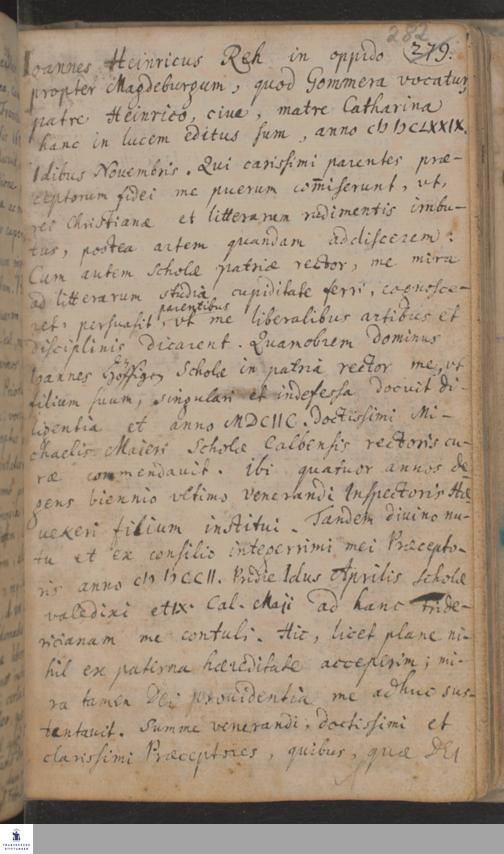 282
279.
Ioannes Heinricus Reh in oppido
propter Magdeburgum, quod Gommera vocatur,
patre Heinrico, cive, matre Catharina
hanc in lucem editus sum, anno cIↄ Iↄ cLXXIX.
Idibus Novembris. Qui carissimi parentes præ-
ceptorum fidei me puerum com̄iserunt, ut,
rei Christianæ et litterarum rudimentis imbu-
tus, postea artem quandam addiscerem.
Cum autem Scholæ patriæ rector, me mira
ad litterarum studia cupiditate ferri, cognosce-
ret, persuasit parentibus, ut me liberalibus artibus et
disciplinis dicarent. Quamobrem Dominus
Ioannes Scholæ in patria rector me, ut
filium suum, singulari et indefessa docuit di-
ligentia et anno MDCIIC. Doctissimi Mi-
chaelis Maieri Scholæ Calbensis rectoris cu-
ræ commendavit. Ibi quatuor annos de-
gens biennio ultimo Venerandi Inspectoris Hæ-
vekeri filium institui. Tandem divino nu-
tu et ex consilio integerrimi mei Præcepto-
ris anno cIↄ Iↄ CCII. Pridie Idus Aprilis Scholæ
valedixi et IX. Cal. Maji ad hanc Fride-
ricianam me contuli. Hic, licet plane ni-
hil ex paterna hæreditate acceperim; mi-
ra tamen Dei providentia me adhuc sus-
tentavit. Summe venerandi, doctissimi et
clarissimi Præceptores, quibus, quæ DEI
FRANCKESCHE
STIFTUNGEN